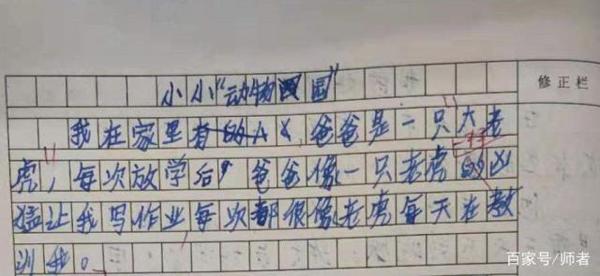 小小“动物园”
修正栏
我在家里有的人，爸爸是一只大老
虎，每次放学后，爸爸像一只老虎一样的凶
猛让我写作业，每次都很像老虎每天在教
训我。
百家号/师者